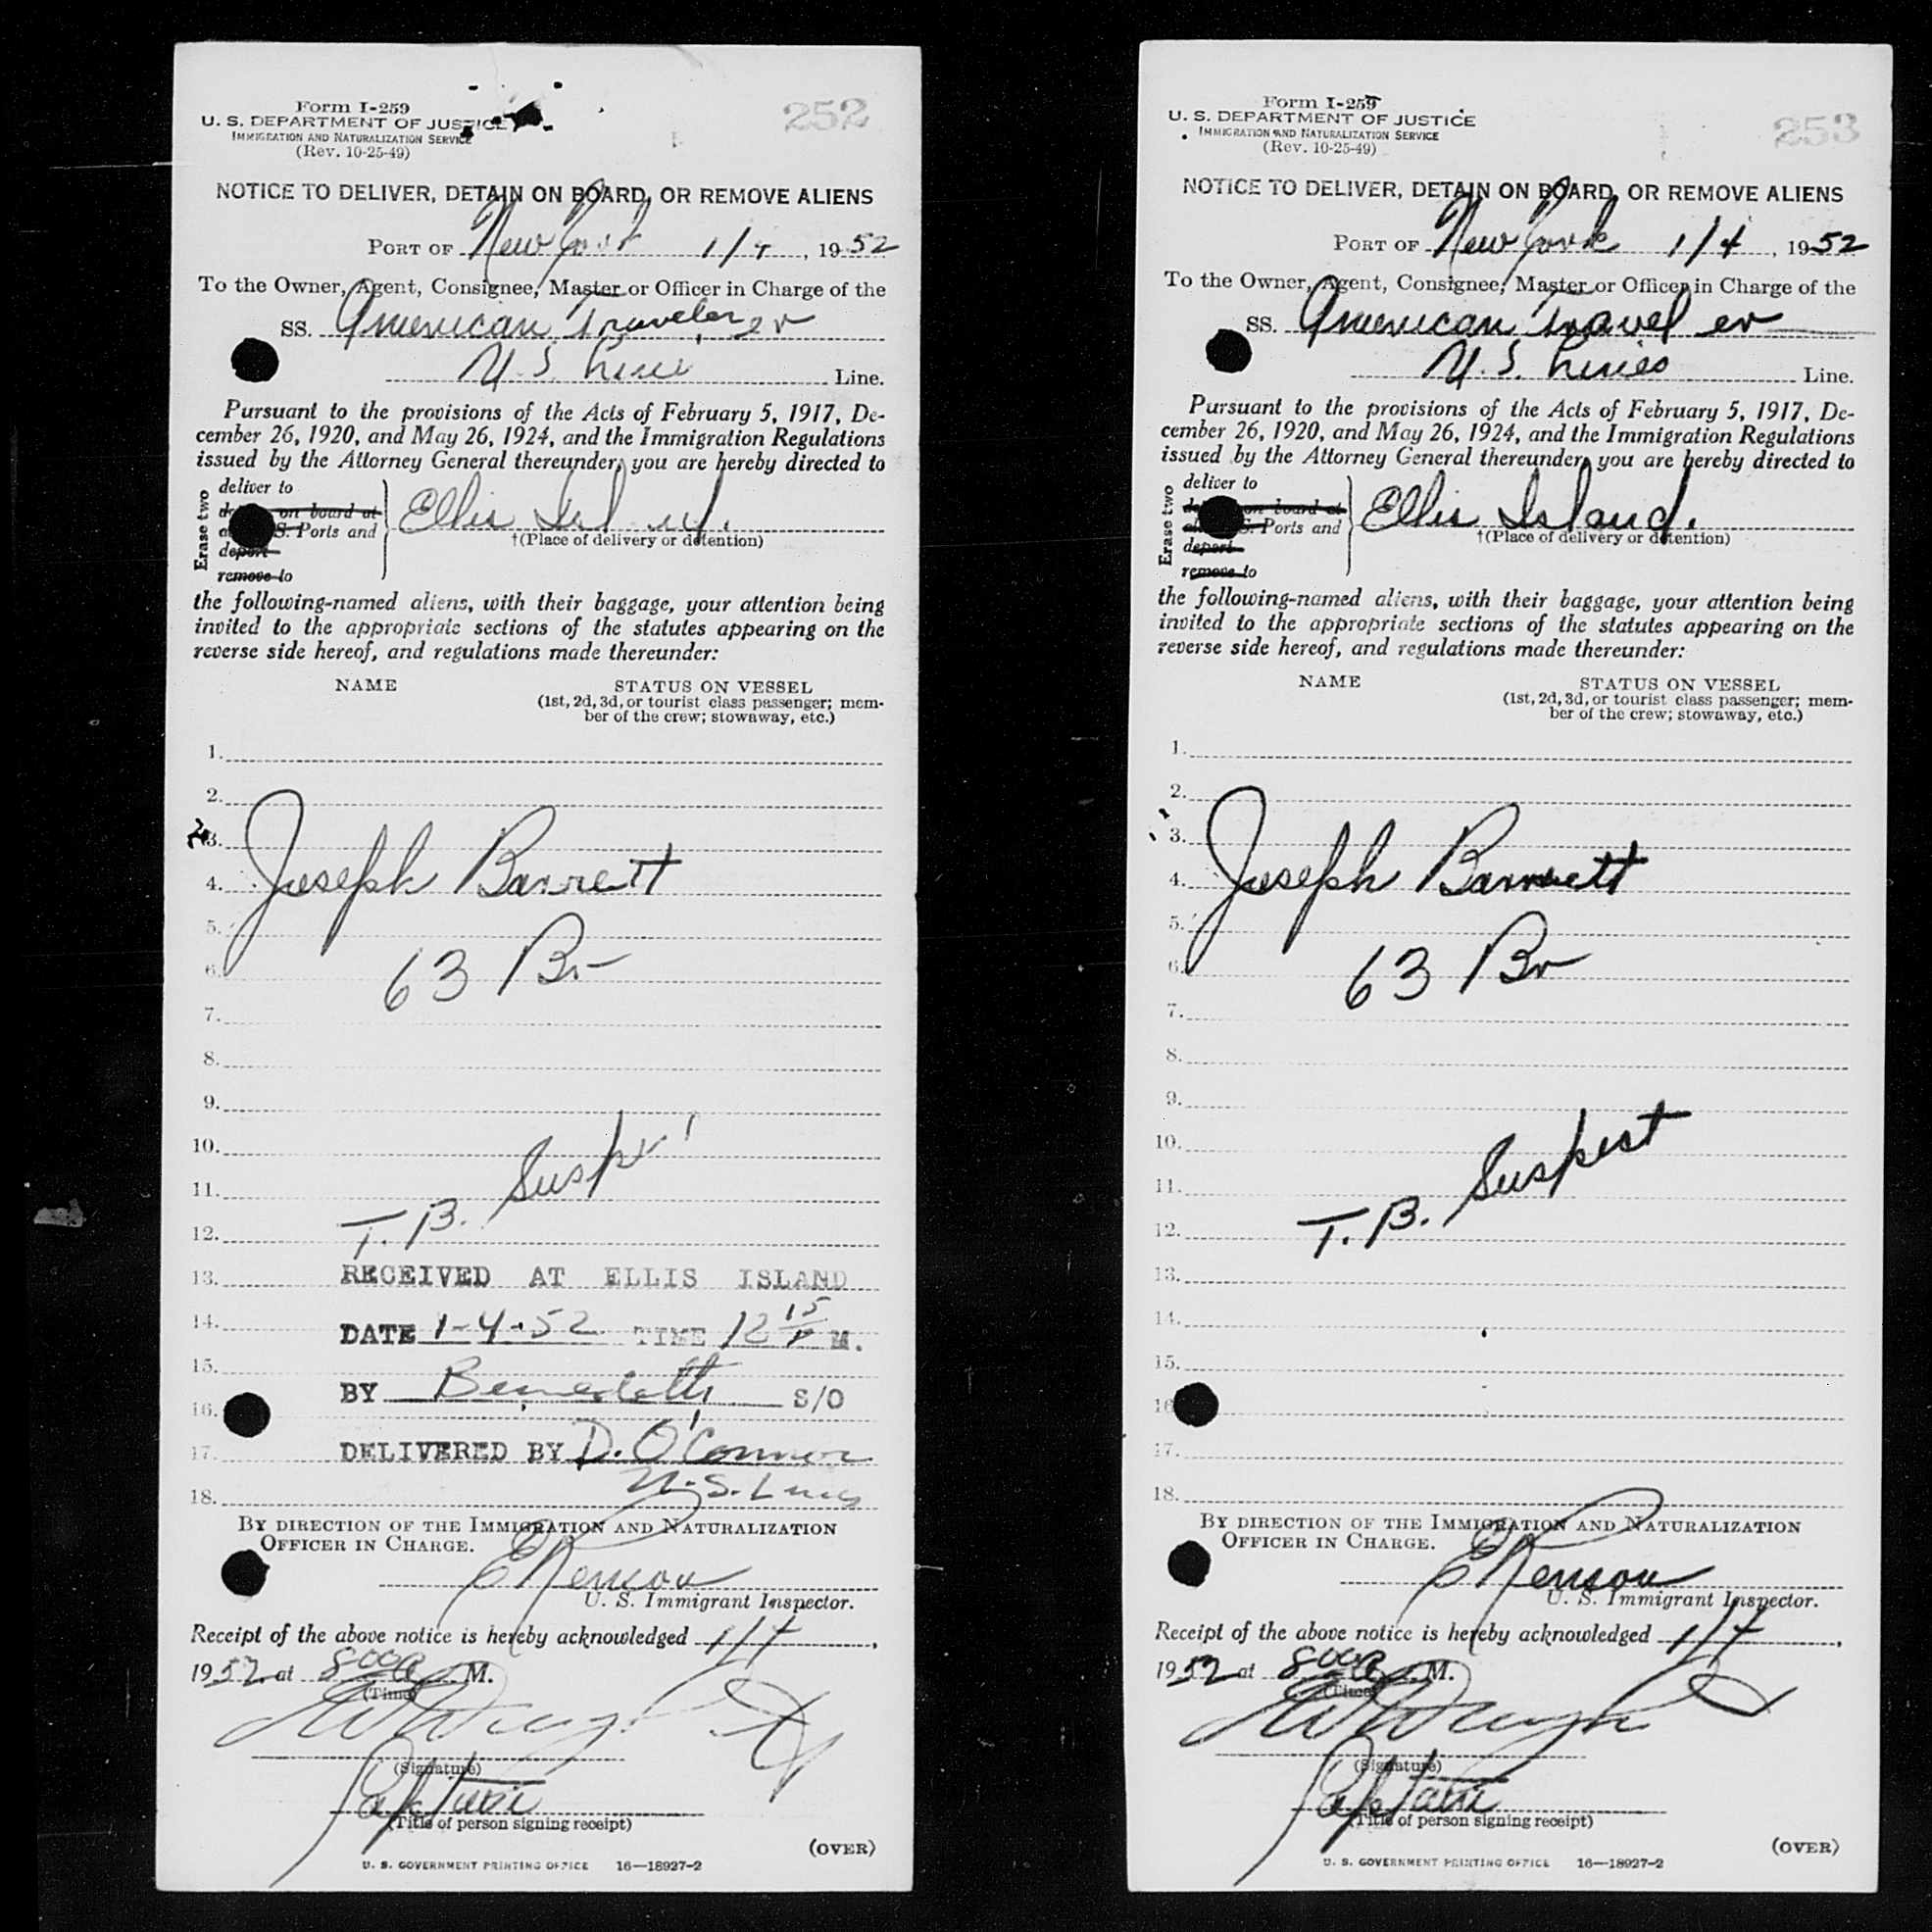 Form I-259
U. S. DEPARTMENT OF JUSTICE
IMMIGRATION AND NATURALIZATION SERVICE
(Rev. 10-25-49)
252
NOTICE TO DELIVER, DETAIN ON BOARD, OR REMOVE ALIENS
PORT OF New York 1/4, 1952
To the Owner, Agent, Consignee, Master or Officer in Charge of the
SS. American Traveler er
U.S. Lines Line.
Pursuant to the provisions of the Acts of February 5, 1917, De-
cember 26, 1920, and May 26, 1924, and the Immigration Regulations
issued by the Attorney General thereunder, you are hereby directed to
Erase two
deliver to
on board at
S. Ports and
deport
remove to
Ellis Island.
†(Place of delivery or detention)
the following-named aliens, with their baggage, your attention being
invited to the appropriate sections of the statutes appearing on the
reverse side hereof, and regulations made thereunder:
NAME STATUS ON VESSEL
(1st, 2d, 3d, or tourist class passenger; mem-
ber of the crew; stowaway, etc.)
1.
2.
3.
4. Joseph Barrett
5.
6. 63 Br
7.
8.
9.
10.
11. Suspect
12. T. B.
13. RECEIVED AT ELLIS ISLAND
14. DATE 1-4-52 TIME 12 15 P M.
15.
BY S/O
16.
17. DELIVERED BY D. O'Connor
U.S. Lines
18.
BY DIRECTION OF THE IMMIGRATION AND NATURALIZATION
OFFICER IN CHARGE.
U. S. Immigrant Inspector.
Receipt of the above notice is hereby acknowledged 1/4,
1952 at 800 a M.
(Time)
(Signature)
Captain
(Title of person signing receipt)
(OVER)
U. S. GOVERNMENT PRINTING OFFICE 16—18927-2
Form I-259
U. S. DEPARTMENT OF JUSTICE
IMMIGRATION AND NATURALIZATION SERVICE
(Rev. 10-25-49)
253
NOTICE TO DELIVER, DETAIN ON BOARD, OR REMOVE ALIENS
PORT OF New York 1/4, 1952
To the Owner, Agent, Consignee, Master or Officer in Charge of the
SS. American Traveler
U.S. Lines Line.
Pursuant to the provisions of the Acts of February 5, 1917, De-
cember 26, 1920, and May 26, 1924, and the Immigration Regulations
issued by the Attorney General thereunder, you are hereby directed to
Erase two
deliver to
on board at
S. Ports and
deport
remove to
Ellis Island.
†(Place of delivery or detention)
the following-named aliens, with their baggage, your attention being
invited to the appropriate sections of the statutes appearing on the
reverse side hereof, and regulations made thereunder:
NAME STATUS ON VESSEL
(1st, 2d, 3d, or tourist class passenger; mem-
ber of the crew; stowaway, etc.)
1.
2.
3.
4. Joseph Barrett
5.
6. 63 Br
7.
8.
9.
10.
11. Suspect
12. T. B.
13.
14.
15.
16
17.
18.
BY DIRECTION OF THE IMMIGRATION AND NATURALIZATION
OFFICER IN CHARGE.
U. S. Immigrant Inspector.
Receipt of the above notice is hereby acknowledged 1/4,
1952 at 800 a M.
(Time)
(Signature)
Captain
(Title of person signing receipt)
(OVER)
U. S. GOVERNMENT PRINTING OFFICE 16—18927-2